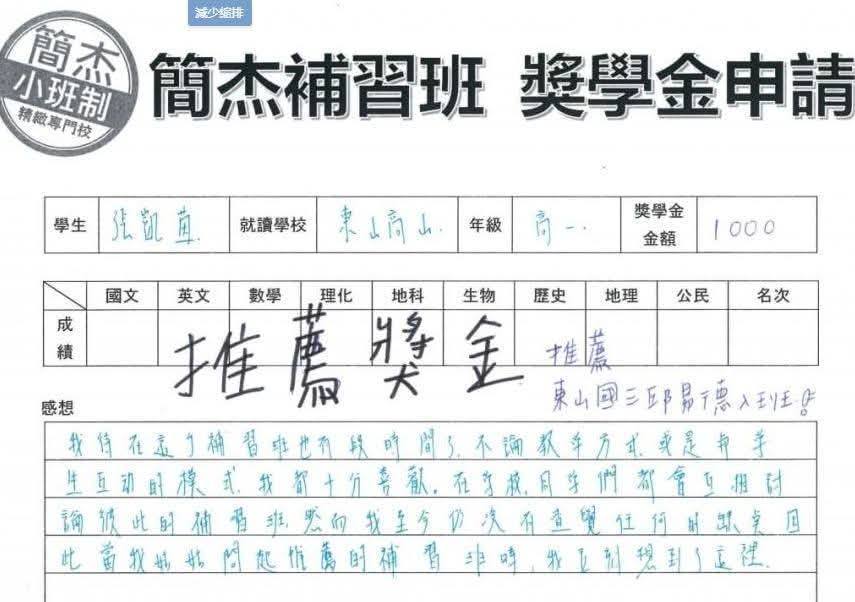 減少縮排
簡杰
小班制
精緻專門校
簡杰補習班 獎學金申請
學生 張凱茵. 就讀學校 東山高山. 年級 高一. 獎學金金額 1000
國文 英文 數學 理化 地科 生物 歷史 地理 公民 名次
成績
推薦獎金
推薦
東山國三邱易德入班
感想
我待在這了補習班也有段時間了,不論教學方式,或是與學
生互动的模式,我都十分喜歡。在学校,同学們都會互相討
論彼此的補習班,然而我至今仍沒有查覺任何的缺点因
此當我姑姑問起推薦的補習班時,我立刻想到了這裡.